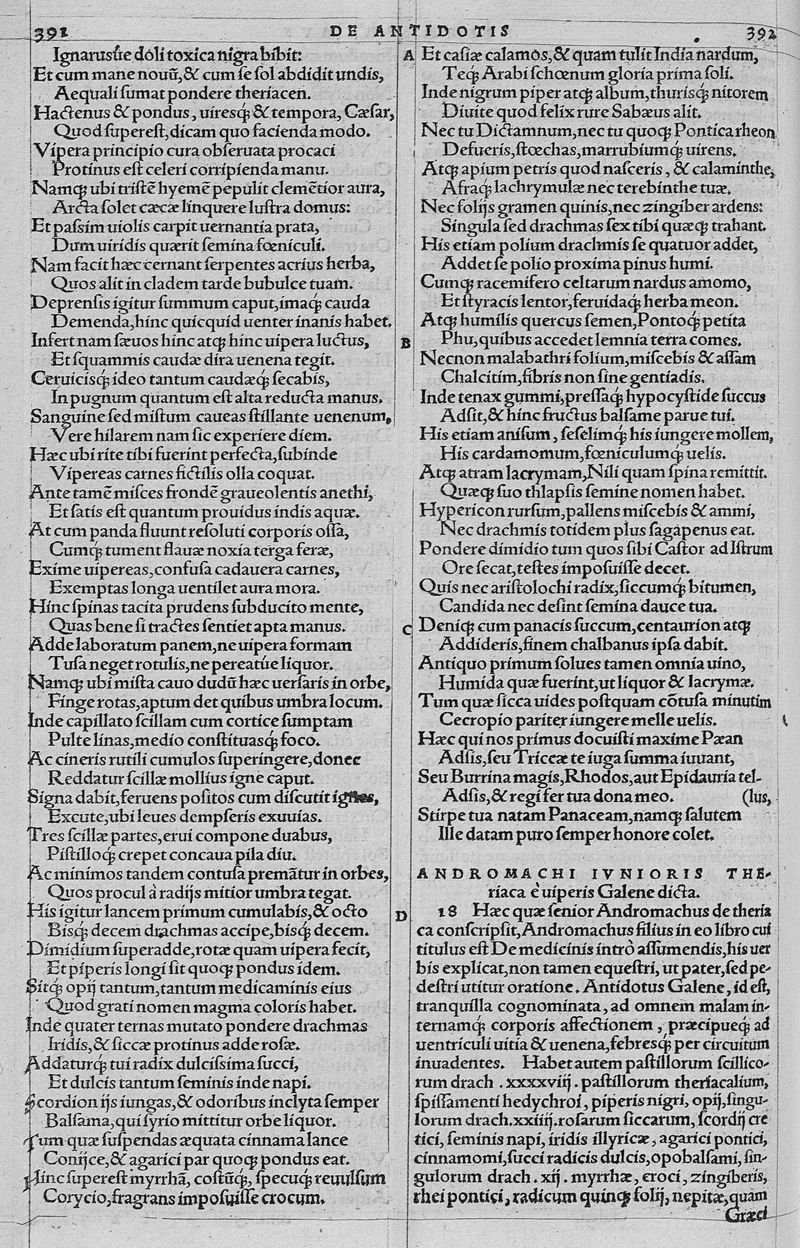 391
DE ANTIDOTIS
392
Ignarusũe doli toxica nigra bibit:
Et cum mane nouũ,& cum se sol abdidit undis,
Aequali sumat pondere theriacen.
Hactenus & pondus, uiresq́; & tempora, Cæsar,
Quod superest,dicam quo facienda modo.
Vipera principio cura obseruata procaci
Protinus est celeri corripienda manu.
Namq́; ubi tristẽ hyemẽ pepulit clemẽtior aura,
Arcta solet cæcæ linquere lustra domus:
Et passim uiolis carpit uernantia prata,
Dum uiridis quærit semina fœniculi.
Nam facit hæc cernant serpentes acrius herba,
Quos alit in cladem tarde bubulce tuam.
Deprensis igitur summum caput,imaq́; cauda
Demenda,hinc quicquid uenter inanis habet.
Infert nam sæuos hinc atq́; hinc uipera luctus,
Et squammis caudæ dira uenena tegit.
Ceruicisq́; ideo tantum caudæq́; secabis,
In pugnum quantum est alta reducta manus.
Sanguine sed mistum caueas stillante uenenum,
Vere hilarem nam sic experiere diem.
Hæc ubi rite tibi fuerint perfecta,subinde
Vipereas carnes fictilis olla coquat.
Ante tamẽ misces frondẽ graueolentis anethi,
Et satis est quantum prouidus indis aquæ.
At cum panda fluunt resoluti corporis ossa,
Cumq́; tument flauæ noxia terga feræ,
Exime uipereas,confusa cadauera carnes,
Exemptas longa uentilet aura mora.
Hinc spinas tacita prudens subducito mente,
Quas bene si tractes sentiet apta manus.
Adde laboratum panem,ne uipera formam
Tusa neget rotulis,ne pereatúe liquor.
Namq́; ubi mista cauo dudũ hæc uersaris in orbe,
Finge rotas,aptum det quibus umbra locum.
Inde capillato scillam cum cortice sumptam
Pulte linas,medio constituasq́; foco.
Ac cineris rutili cumulos superingere,donec
Reddatur scillæ mollius igne caput.
Signa dabit,feruens positos cum discutit ignes,
Excute,ubi leues dempseris exuuias.
Tres scillæ partes,erui compone duabus,
Pistilloq́; crepet concaua pila diu.
Ac minimos tandem contusa premãtur in orbes,
Quos procul à radijs mitior umbra tegat.
His igitur lancem primum cumulabis,& octo
Bisq́; decem drachmas accipe,bisq́; decem.
Dimidium superadde,rotæ quam uipera fecit,
Et piperis longi sit quoq́; pondus idem.
Sitq́; opij tantum,tantum medicaminis eius
Quod grati nomen magma coloris habet.
Inde quater ternas mutato pondere drachmas
Iridis,& siccæ protinus adde rosæ.
Addaturq́; tui radix dulcissima succi,
Et dulcis tantum seminis inde napi.
Scordion ijs iungas,& odoribus inclyta semper
Balsama,qui syrio mittitur orbe liquor.
Tum quæ suspendas æquata cinnama lance
Conijce,& agarici par quoq́; pondus eat.
Hinc superest myrrhã, costũq́;, specuq́; reuulsum
Corycio,fragrans imposuisse crocum.
A Et casiæ calamos,& quam tulit India nardum,
Teq́; Arabi schœnum gloria prima soli.
Inde nigrum piper atq́; album,thurisq́; nitorem
Diuite quod felix rure Sabæus alit.
Nec tu Dictamnum,nec tu quoq́; Pontica rheon
Defueris,stœchas,marrubiumq́; uirens.
Atq́; apium petris quod nasceris, & calaminthe,
Afraq́; lachrymulæ nec terebinthe tuæ.
Nec folijs gramen quinis,nec zingiber ardens:
Singula sed drachmas sex tibi quæq́; trahant.
His etiam polium drachmis se quatuor addet,
Addet se polio proxima pinus humi.
Cumq́; racemifero celtarum nardus amomo,
Et styracis lentor,feruidaq́; herba meon.
Atq́; humilis quercus semen,Pontoq́; petita
B Phu,quibus accedet lemnia terra comes.
Necnon malabathri folium,miscebis & assam
Chalcitim,fibris non sine gentiadis.
Inde tenax gummi,pressaq́; hypocystide succus
Adsit,& hinc fructus balsame parue tui.
His etiam anisum, seselimq́; his iungere mollem,
His cardamomum,fœniculumq́; uelis.
Atq́; atram lacrymam,Nili quam spina remittit.
Quæq́; suo thlapsis semine nomen habet.
Hypericon rursum,pallens miscebis & ammi,
Nec drachmis totidem plus sagapenus eat.
Pondere dimidio tum quos sibi Castor ad Istrum
Ore secat,testes imposuisse decet.
Quis nec aristolochi radix,siccumq́; bitumen,
Candida nec desint semina dauce tua.
C Deniq́; cum panacis succum,centaurion atq́
Addideris,finem chalbanus ipsa dabit.
Antiquo primum solues tamen omnia uino,
Humida quæ fuerint,ut liquor & lacrymæ.
Tum quæ sicca uides postquam cõtusa minutim
Cecropio pariter iungere melle uelis.
Hæc qui nos primus docuisti maxime Pæan
Adsis,seu Triccæ te iuga summa iuuant,
Seu Burrina magis,Rhodos,aut Epidauria tel-
Adsis,& regi fer tua dona meo. (lus,
Stirpe tua natam Panaceam,namq́; salutem
Ille datam puro semper honore colet.
ANDROMACHI IVNIORIS THE-
riaca è uiperis Galene dicta.
D 18 Hæc quæ senior Andromachus de theria
ca conscripsit,Andromachus filius in eo libro cui
titulus est De medicinis intrò assumendis,his uer
bis explicat,non tamen equestri, ut pater,sed pe-
destri utitur oratione. Antidotus Galene, id est,
tranquilla cognominata, ad omnem malam in-
ternamq́; corporis affectionem, præcipueq́; ad
uentriculi uitia & uenena,febresq́; per circuitum
inuadentes. Habet autem pastillorum scillico-
rum drach .xxxxviij. pastillorum theriacalium,
spissamenti hedychroi, piperis nigri, opij,singu-
lorum drach.xxiiij.rosarum siccarum, scordij cre
tici, seminis napi, iridis illyricæ, agarici pontici,
cinnamomi,succi radicis dulcis,opobalsami, sin-
gulorum drach. xij. myrrhæ, croci, zingiberis,
rhei pontici, radicum quinq́; folij, nepitæ,quam
Græci